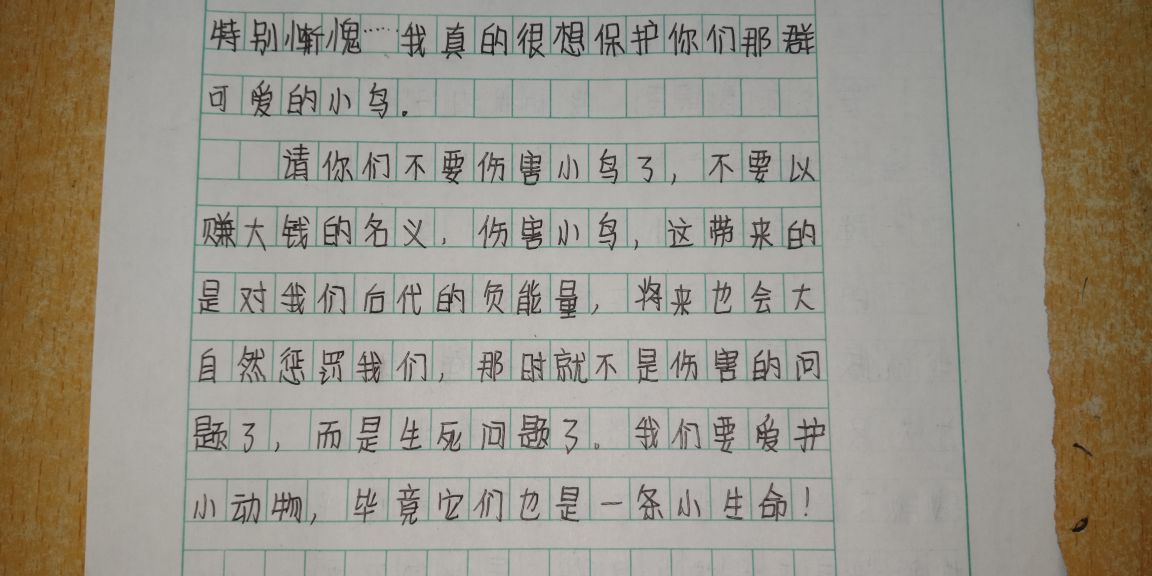 特别惭愧……我真的很想保护你们那群
可爱的小鸟.
请你们不要伤害小鸟了，不要以
赚大钱的名义，伤害小鸟，这带来的
是对我们后代的负能量，将来也会大
自然惩罚我们，那时就不是伤害的问
题了，而是生死问题了。我们要爱护
小动物，毕竟它们也是一条小生命！